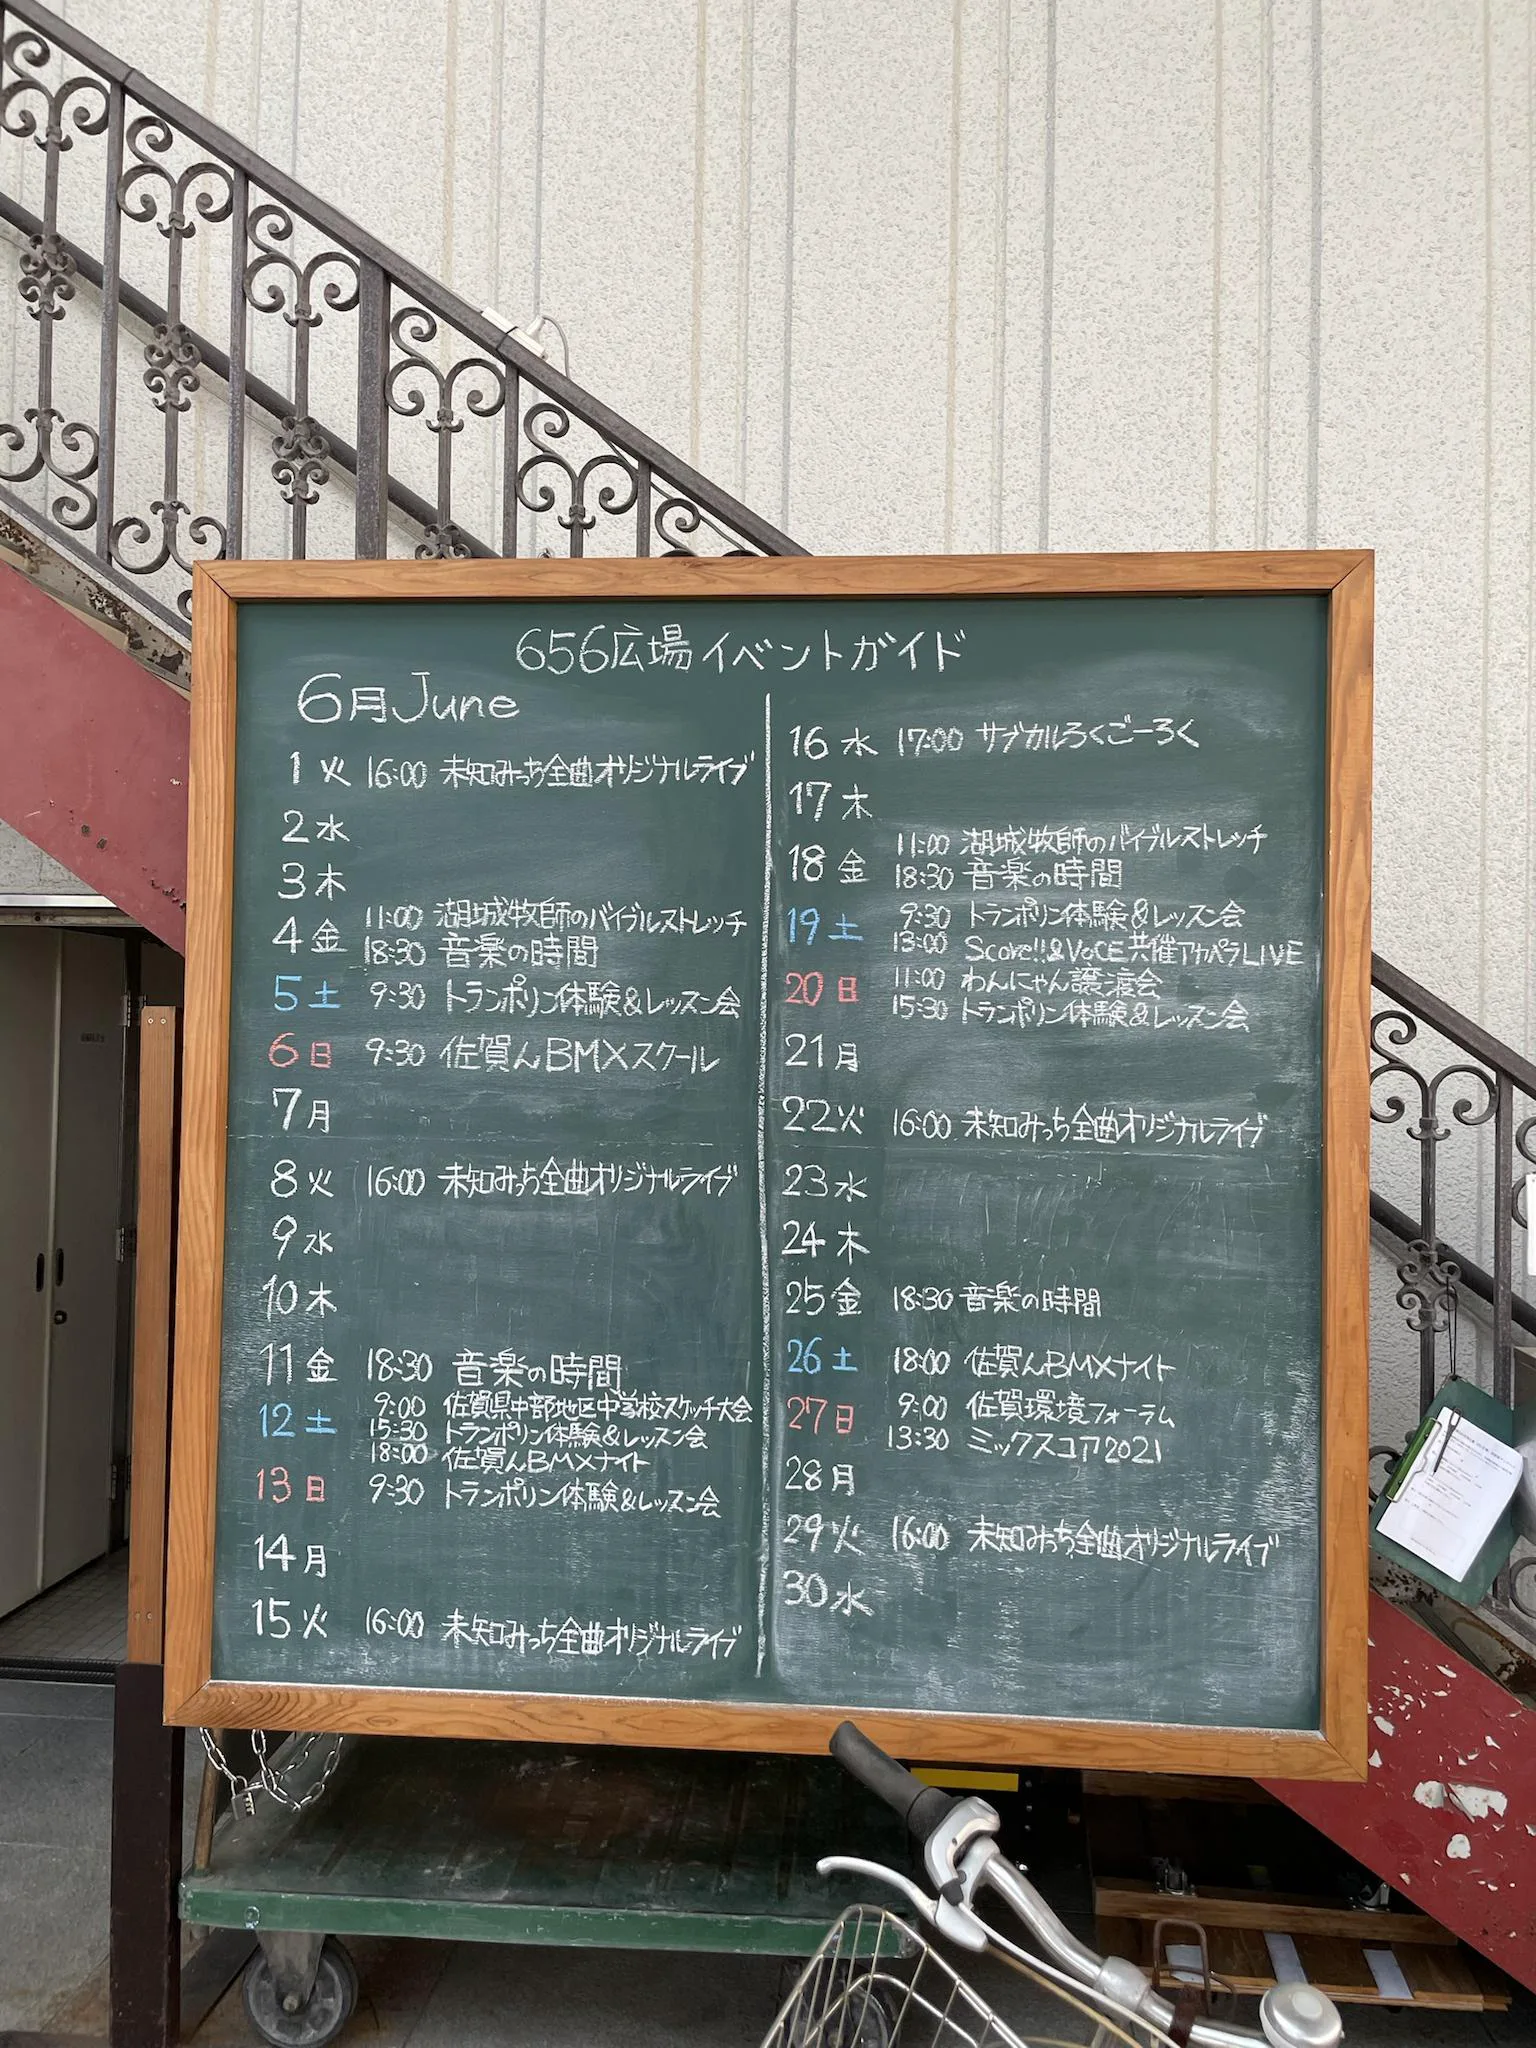 656広場イベントガイド
6月June
1 火 16:00 未知みっち全曲オリジナルライブ
2 水
3 木
4 金 11:00 湖城牧師のバイブルストレッチ
18:30 音楽の時間
5 土 9:30 トランポリン体験&レッスン会
6 日 9:30 佐賀んBMXスクール
7 月
8 火 16:00 未知みっち全曲オリジナルライブ
9 水
10 木
11 金 18:30 音楽の時間
12 土 9:00 佐賀県中部地区中学校スケッチ大会
15:30 トランポリン体験&レッスン会
18:00 佐賀んBMXナイト
13 日 9:30 トランポリン体験&レッスン会
14 月
15 火 16:00 未知みっち全曲オリジナルライブ
16 水 17:00 サブカルろくごーろく
17 木
18 金 11:00 湖城牧師のバイブルストレッチ
18:30 音楽の時間
19 土 9:30 トランポリン体験&レッスン会
13:00 Score!!&VoCE共催アカペラLIVE
20 日 11:00 わんにゃん譲渡会
15:30 トランポリン体験&レッスン会
21 月
22 火 16:00 未知みっち全曲オリジナルライブ
23 水
24 木
25 金 18:30 音楽の時間
26 土 18:00 佐賀んBMXナイト
27 日 9:00 佐賀環境フォーラム
13:30 ミックスコア2021
28 月
29 火 16:00 未知みっち全曲オリジナルライブ
30 水